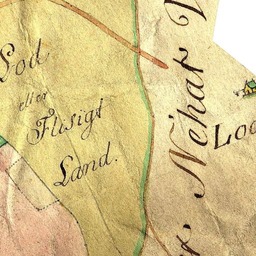 Lod
eller
Flisigt
Land.
Nehat
Loo